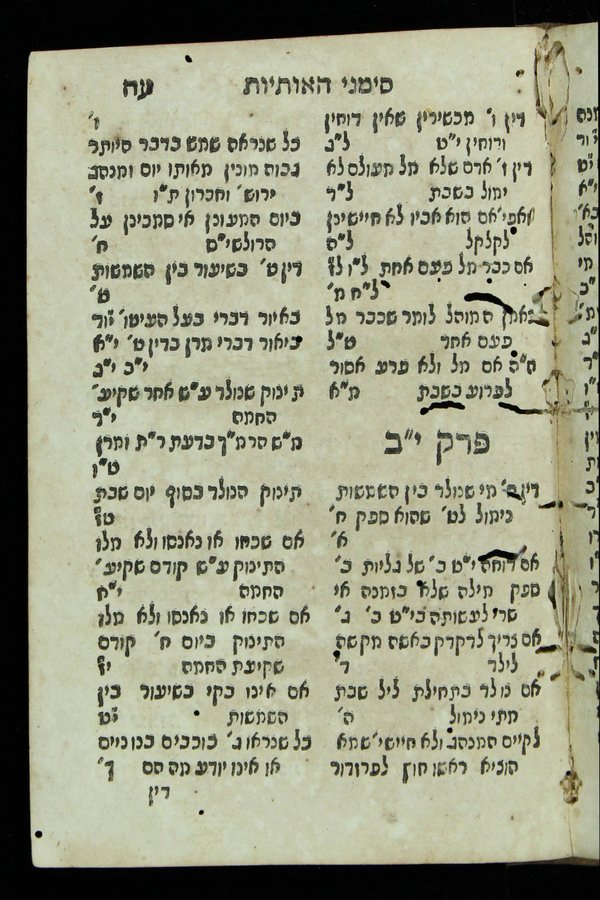 סימני האותיות עח
דין ו׳ מכשירין שאין דוחין
ודוחין י״ט ל״ג
דין ז׳ אדם שלא מל מעולם לא
ימול בשבת ל״ד
ואפי׳ אם הוא אביו לא חיישינן
לקלקל ל״ה
אם כבר מל פעם אחת ל״ו ל״ז
ל״ח מ׳
נאמן המוהל לומר שכבר מל
פעם אחד ט״ל
ח״ה אם מל ולא פרע אסור
לפרוע בשבת מ״א
פרק י״ב
דין ח׳ מי שנולד בין השמשות
נימול לט׳ שהוא ספק ח׳
א׳
אם דוחה י״ט ב׳ של גליות ב׳
ספק מילה שלא בזמנה אי
שרי לעשותה בי״ט ב׳ ג׳
אם צריך לדקדק באשה מקשה
לילד ד׳
אם נולד בתחילת ליל שבת
מתי נימול ה׳
לקיים המנהג ולא חיישי׳ שמא
הוציא ראשו חוץ לפרוזדור
ו׳
כל שנראה שמש בדבר היותר
גבוה מונין מאותו יום ומנהג
ירוש׳ וחברון ת״ו ז׳
ביום המעונן אי סמכינן על
הרולשי״ם ח׳
דין ט׳ בשיעור בין השמשות
ט׳
באיור דברי בעל העיטו׳ יו״ד
ביאור דברי מרן בדין ט׳ י״א
י״ב י״ג
תינוק שנולד ע״ש אחר שקיע׳
החמה י״ד
מ״ש הרמ״ך בדעת ר״ת ומרן
ט״ו
תינוק הנולד בסוף יום שבת
ט״ז
אם שכחו או נאנסו ולא מלו
התינוק ע״ש קודם שקיע׳
החמה י״ח
אם שכחו או נאנסו ולא מלו
התינוק ביום ח׳ קודם
שקיעת החמה י״ז
אם אינו בקי בשיעור בין
השמשות י״ט
כל שנראו ג׳ כוכבים בנוניים
או אינו יודע מה הם ך׳
דין